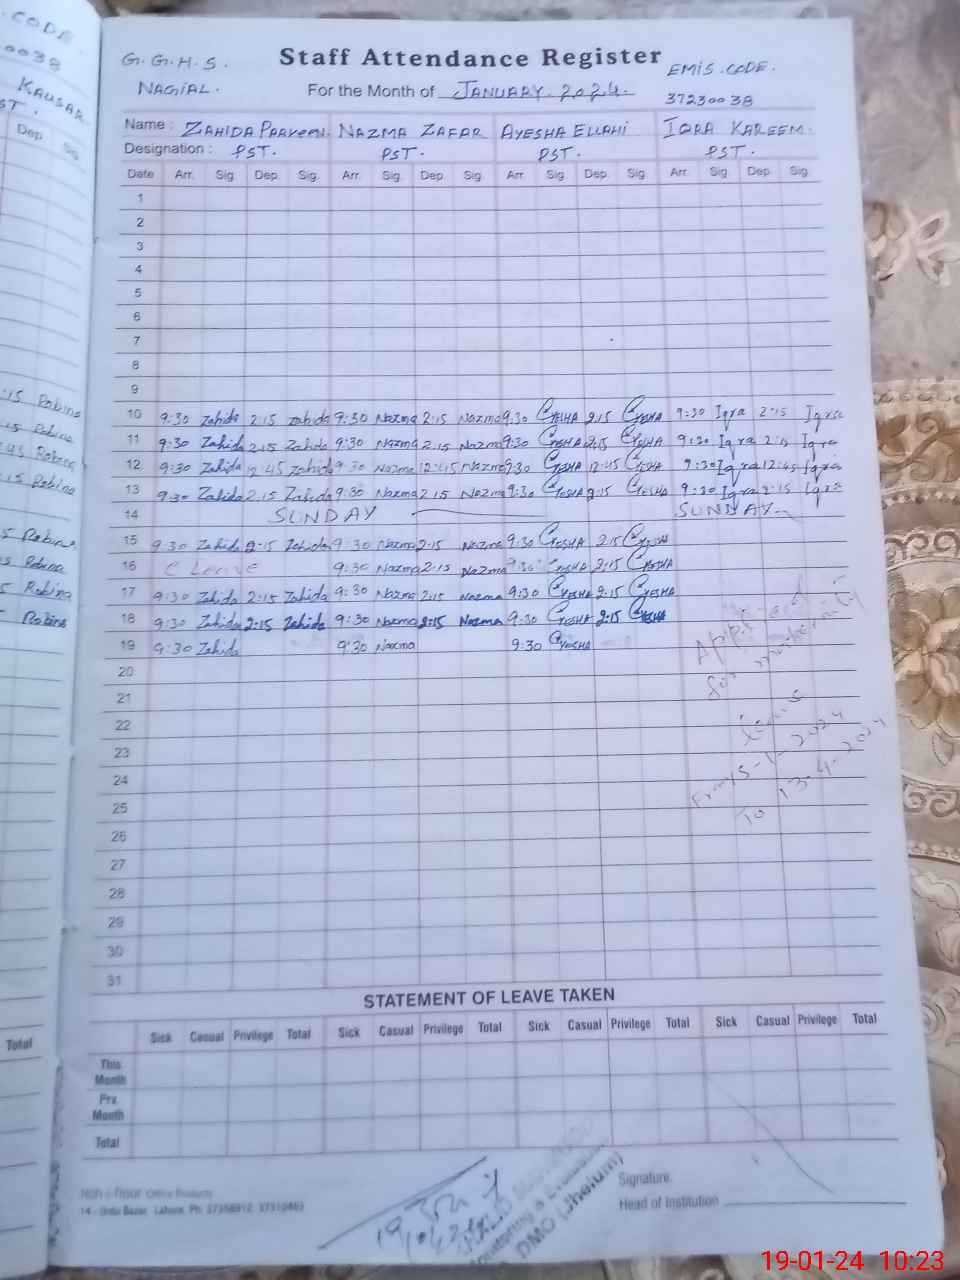 G.G.H.S. Staff Attendance Register EMIS.CODE.
NAGIAL. For the Month of JANUARY.2024. 37230038
Name: ZAHIDA PARVEEN. NAZMA ZAFAR AYESHA ELLAHI IQRA KAREEM.
Designation: PST. PST. PST. PST.
Date Arr. Sig. Dep. Sig. Arr. Sig. Dep. Sig. Arr. Sig. Dep. Sig. Arr. Sig. Dep. Sig.
1
2
3
4
5
6
7
8
9
10 9:30 Zahida 2:15 Zahida 9:30 Nazma 2:15 Nazma 9:30 2:15 9:30 Iqra 2:15 Iqra
11 9:30 Zahida 2:15 Zahida 9:30 Nazma 2:15 Nazma 9:30 2:15 9:30 Iqra 2:15 Iqra
12 9:30 Zahida 12:45 Zahida 9:30 Nazma 12:45 Nazma 9:30 12:45 9:30 Iqra 12:45 Iqra
13 9:30 Zahida 2:15 Zahida 9:30 Nazma 2:15 Nazma 9:30 2:15 9:30 Iqra 2:15 Iqra
14 SUNDAY SUNDAY
15 9:30 Zahida 2:15 Zahida 9:30 Nazma 2:15 Nazma 9:30 2:15
16 C Leave 9:30 Nazma 2:15 Nazma 9:30 2:15
17 9:30 Zahida 2:15 Zahida 9:30 Nazma 2:15 Nazma 9:30 2:15
18 9:30 Zahida 2:15 Zahida 9:30 Nazma 2:15 Nazma 9:30 2:15
19 9:30 Zahida 9:30 Nazma 9:30
Applied
for
20
21
22
From 15-1-2024
To 13-4-2024
23
24
25
26
27
28
29
30
31
STATEMENT OF LEAVE TAKEN
Sick Casual Privilege Total Sick Casual Privilege Total Sick Casual Privilege Total Sick Casual Privilege Total
This Month
Prv. Month
Total
Office Products
14 - Urdu Bazar, Lahore. Ph:
Signature
Head of Institution
DMO (Jhelum)
CODE.
0038
KAUSAR
Dep. Sig
:15 Robina
:15 Robina
:45 Robina
:15 Robina
5 Robina
5 Robina
5 Robina
Robina
Total
19-01-24 10:23